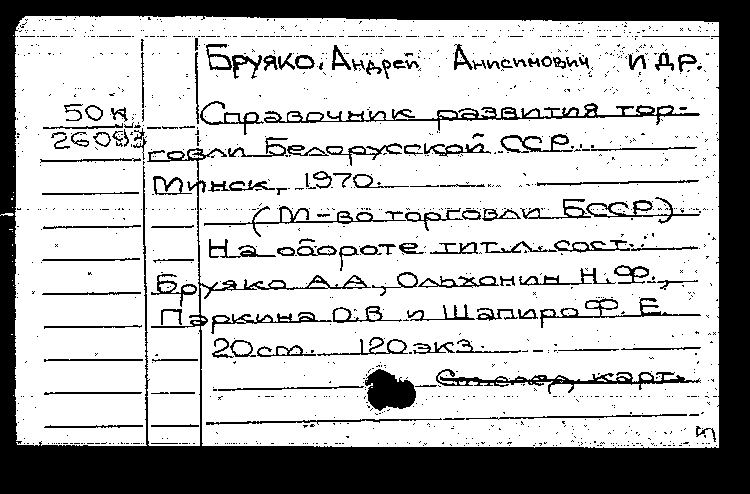 Бруяко, Андрей Анисимович и др.
50 к
26093
Справочник развития тор-
говли Белорусской ССР...
Минск, 1970.
(М-во торговли БССР).
На обороте тит. л. сост.:
Бруяко А.А., Ольхонин Н.Ф.,
Паркина О.В и Шапиро Ф. Е.
20 ст. 120 экз.
См. след. карт.